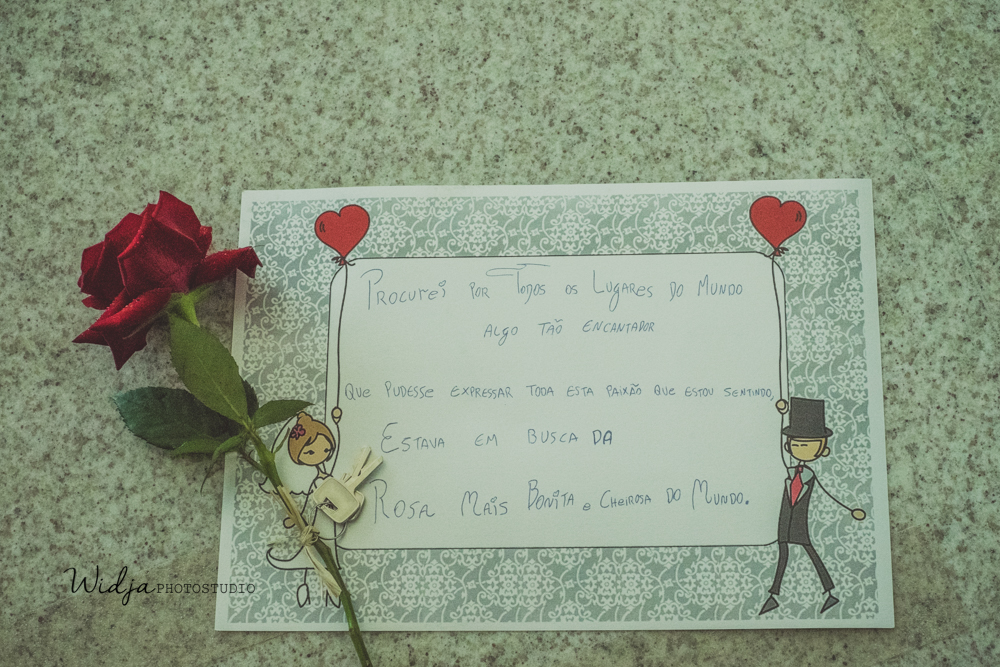 Procurei por Todos os Lugares do Mundo
algo tão encantador
que pudesse expressar toda esta paixão que estou sentindo,
Estava em busca da
Rosa Mais Bonita e cheirosa do Mundo.
Widja PHOTOSTUDIO